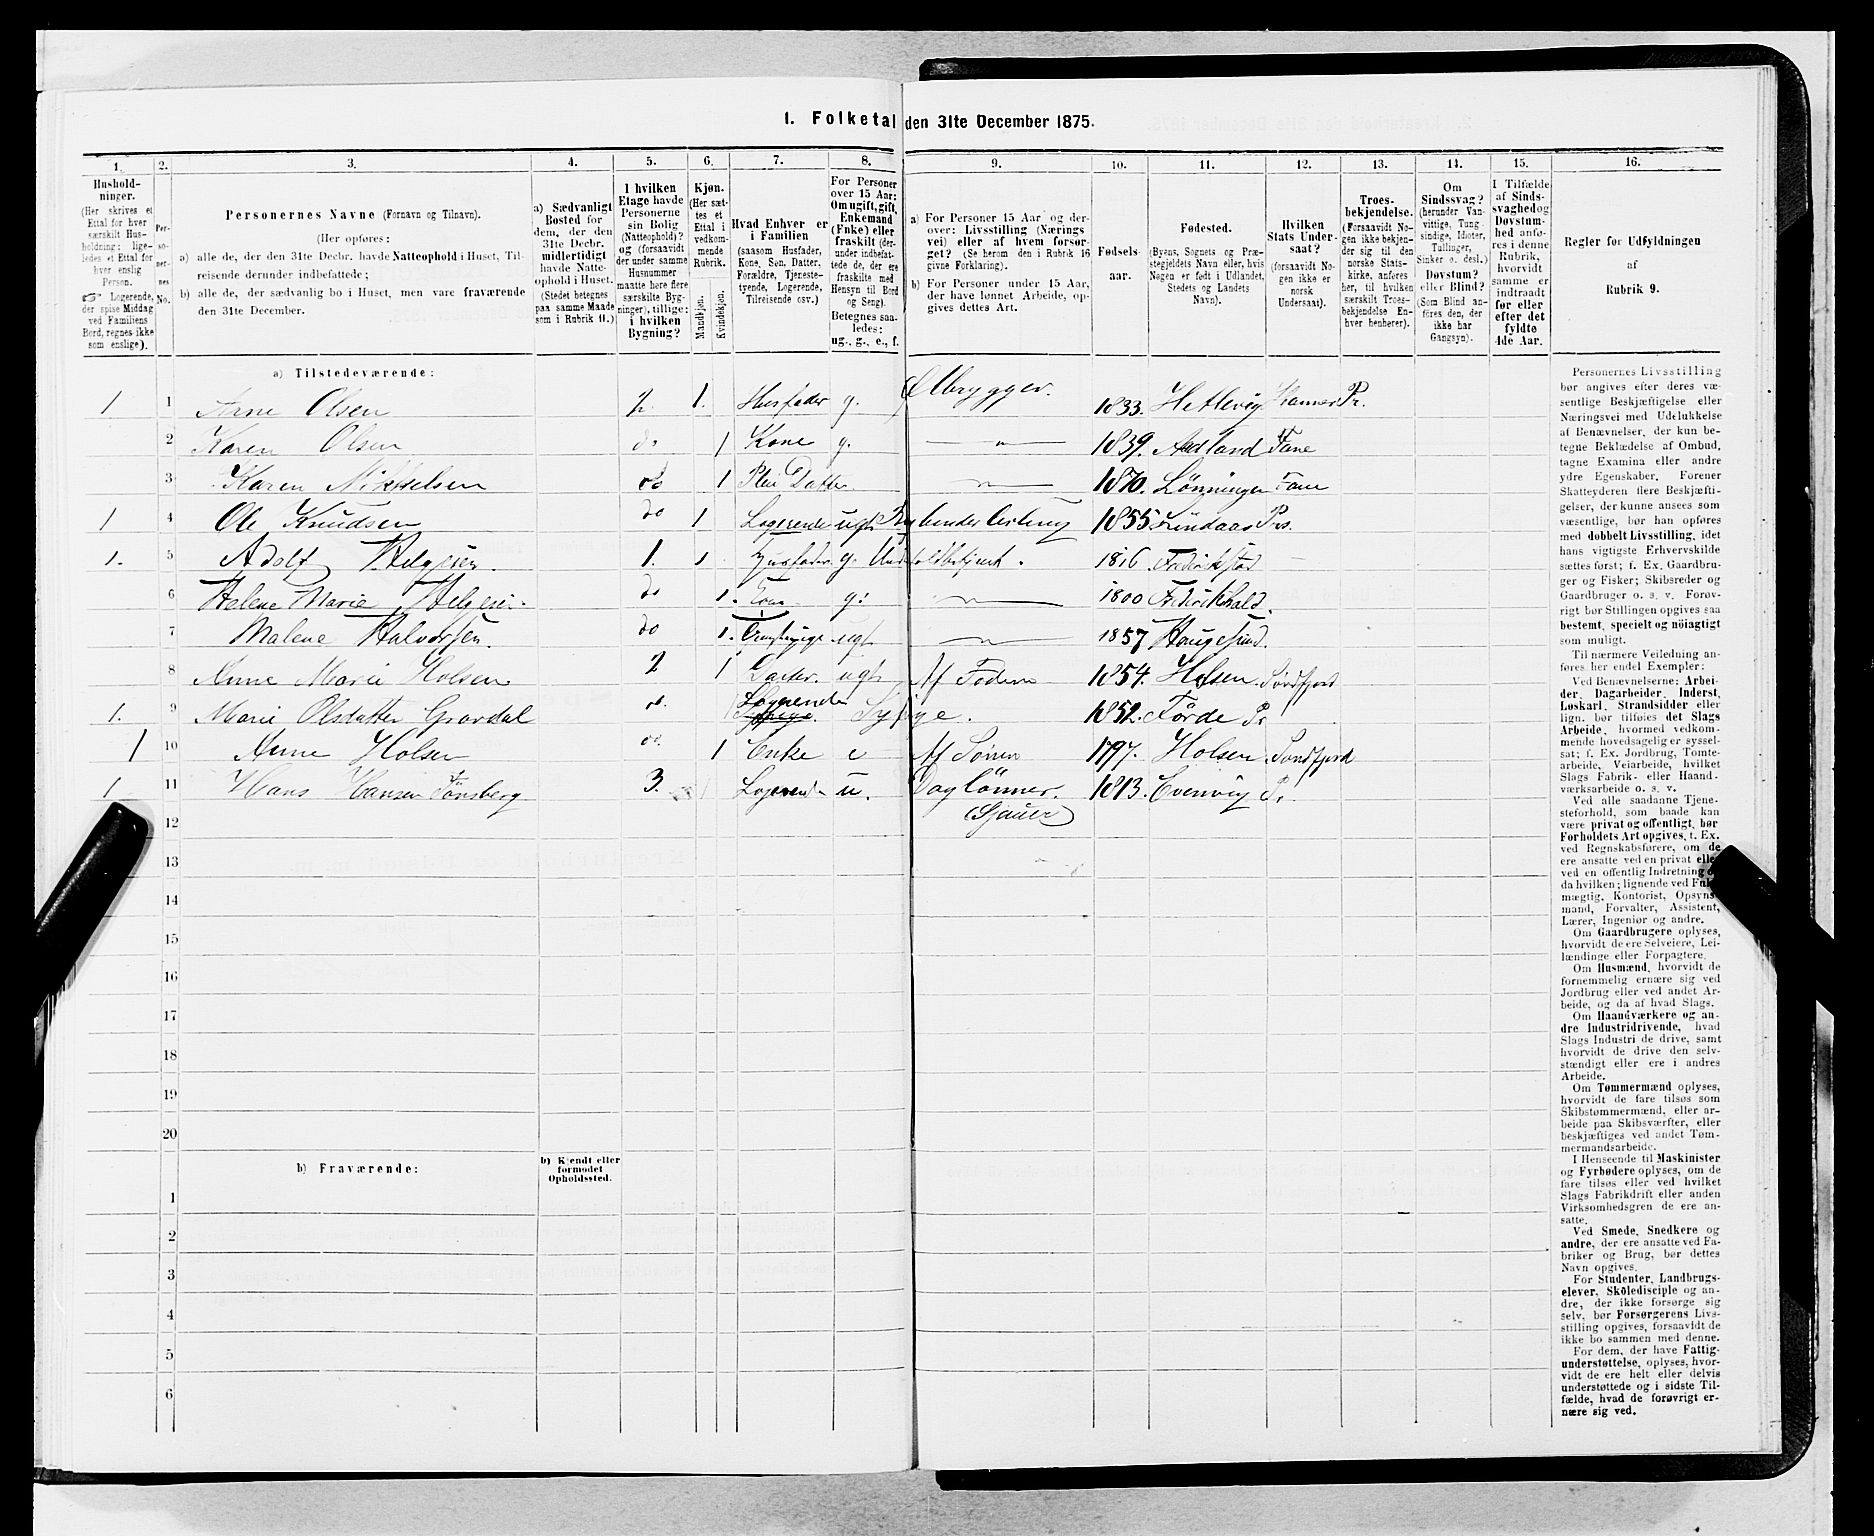 1. Folketal den 31te December 1875.
1. 2. 3. 4. 5. 6. 7. 8. 9. 10. 11. 12. 13. 14. 15. 16.
Hushold-
ninger.
(Her skrives et
Ettal for hver
særskilt Hus-
holdning; lige-
ledes et Ettal for
hver enslig
Person.
☞ Logerende,
der spise Middag
ved Familiens
Bord, regnes ikke
som enslige).
Per-
so-
ner-
nes
No.
Personernes Navne (Fornavn og Tilnavn).
(Her opføres:
a) alle de, der den 31te Decbr. havde Natteophold i Huset, Til-
reisende derunder indbefattede;
b) alle de, der sædvanlig bo i Huset, men vare fraværende
den 31te December.
a) Sædvanligt
Bosted for
dem, der den
31te Decbr.
midlertidigt
havde Natte-
ophold i Huset.
(Stedet betegnes
paa samme Maade
som i Rubrik 11.)
I hvilken
Etage havde
Personerne
sin Bolig
(Natteophold)?
og (forsaavidt
der under samme
Husnummer
maatte høre flere
særskilte Byg-
ninger), tillige:
i hvilken
Bygning?
Kjøn.
(Her sæt-
tes et
Ettal i
vedkom-
mende
Rubrik.
Mandkjøn.
Kvindekjøn.
Hvad Enhver er
i Familien
(saasom Husfader,
Kone, Søn, Datter,
Forældre, Tjeneste-
tyende, Logerende,
Tilreisende osv.)
For Personer
over 15 Aar:
Om ugift, gift,
Enkemand
(Enke) eller
fraskilt (der-
under indbefat-
tede de, der ere
fraskilte med
Hensyn til Bord
og Seng).
Betegnes saa-
ledes:
ug., g., e., f.
a) For Personer 15 Aar og der-
over: Livsstilling (Nærings
vei) eller af hvem forsør-
get? (Se herom den i Rubrik 16
givne Forklaring).
b) For Personer under 15 Aar,
der have lønnet Arbeide, op-
gives dettes Art.
Fødsels-
aar.
Fødested.
(Byens, Sognets og Præ-
stegjeldets Navn eller, hvis
Nogen er født i Udlandet,
Stedets og Landets
Navn).
Hvilken
Stats Under-
saat?
(forsaavidt No-
gen ikke er
norsk
Undersaat).
Troes-
bekjendelse.
(Forsaavidt No-
gen ikke bekjen-
der sig til den
norske Stats-
kirke, anføres
her, til hvilken
særskilt Troes-
bekjendelse En-
hver henhører).
Om
Sindssvag?
(herunder Van-
vittige, Tung-
sindige, Idioter,
Tullinger,
Sinker o. desl.)
Døvstum?
eller Blind?
(Som Blind an-
føres den, der
ikke har
Gangsyn).
I Tilfælde
af Sinds-
svaghed og
Døvstum-
hed anfø-
res i denne
Rubrik,
hvorvidt
samme er
indtraadt
før eller
efter det
fyldte
4de Aar.
Regler for Udfyldningen
af
Rubrik 9.
a) Tilstedeværende:
1 1 Arne Olsen 2. 1. Husfader g. Ølbrygger. 1833. Hetlevig Hammer Pr.
2 Karen Olsen do 1 Kone g. — " — 1839. Aadland Fane
3 Karen Nikkelsen do 1 Plei Datter — " — 1870. Lønningen Fane
1 4 Ole Knudsen do 1 Logerende ugt 1855 Lindaas Prs.
1. 5 Adolf Helgesen. 1. 1 Husfader g. 1816 Fredrikstad —
6 Helene Marie Helgesen. do 1. Kone g: — " — 1800 Fredrikhald.
7 Malene Halvorsen. do 1. ugt — " — 1857 Haugesund.
8 Anne Marie Holsen 2 1 Datter. ugt Af Moderen 1854. Holsen Søndfjord
1. 9 Marie Olsdatter Gravdal do. 1 Logerende Sypige. 1852. Førde Pr
1 10 Anne Holsen do. 1 Enke e Af Sønen 1797. Holsen Søndfjord
1 11 Hans Hansen Tønsberg 3. 1 Logerende u. Daglønner. 1813. Evenvig Pr.
12 (Sjauer)
13
14
15
16
17
18
19
20
b) Fraværende:
b) Kjendt eller
formodet
Opholdssted.
1
2
3
4
5
6
Personernes Livsstilling
bør angives efter deres væ-
sentlige Beskjæftigelse eller
Næringsvei med Udelukkelse
af Benævnelser, der kun be-
tegne Beklædelse af Ombud,
tagne Examina eller andre
ydre Egenskaber. Forener
Skatteyderen flere Beskjæfti-
gelser, der kunne ansees som
væsentlige, bør han opføres
med dobbelt Livsstilling, idet
hans vigtigste Erhvervskilde
sættes først; f. Ex. Gaardbru-
ger og Fisker; Skibsreder og
Gaardbruger o. s. v. Forøv-
rigt bør Stillingen opgives saa
bestemt, specielt og nöiagtigt
som muligt.
Til nærmere Veiledning an-
føres her endel Exempler:
Ved Benævnelserne: Arbei-
der, Dagarbeider, Inderst,
Løskarl, Strandsidder eller
lign. bør tilføies det Slags
Arbeide, hvormed vedkom-
mende hovedsagelig er syssel-
sat; f. Ex. Jordbrug, Tomte-
arbeide, Veiarbeide, hvilket
Slags Fabrik- eller Haand-
værksarbeide o. s. v.
Ved alle saadanne Tjene-
steforhold, som baade kan
være privat og offentligt, bør
Forholdets Art opgives, t. Ex.
ved Regnskabsførere, om de
ere ansatte ved en privat eller
ved en offentlig Indretning
da hvilken; lignende ved Fuld-
mægtig, Kontorist, Opsyns-
mand, Forvalter, Assistent,
Lærer, Ingeniør og andre.
Om Gaardbrugere oplyses,
hvorvidt de ere Selveiere, Lei-
lændinge eller Forpagtere.
Om Husmænd, hvorvidt de
fornemmelig ernære sig ved
Jordbrug eller ved andet Ar-
beide, og da af hvad Slags.
Om Haandværkere og an-
dre Industridrivende, hvad
Slags Industri de drive, samt
hvorvidt de drive den selv-
stændigt eller ere i andres
Arbeide.
Om Tømmermænd oplyses,
hvorvidt de fare tilsøs som
Skibstømmermænd, eller ar-
beide paa Skibsværfter, eller
beskjæftiges ved andet Tøm-
mermandsarbeide.
I Henseende til Maskinister
og Fyrbødere oplyses, om de
fare tilsøs eller ved hvilket
Slags Fabrikdrift eller anden
Virksomhedsgren de ere an-
satte.
Ved Smede, Snedkere og
andre, der ere ansatte ved Fa-
briker og Brug, bør dettes
Navn opgives.
For Studenter, Landbrugs-
elever, Skoledisciple og an-
dre, der ikke forsørge sig
selv, bør Forsørgerens Livs-
stilling opgives, forsaavidt de
ikke bo sammen med denne.
For dem, der have Fattig-
understøttelse, oplyses, hvor-
vidt de ere helt eller delvis
understøttede og i sidste Til-
fælde, hvad de forøvrigt er-
nære sig ved.